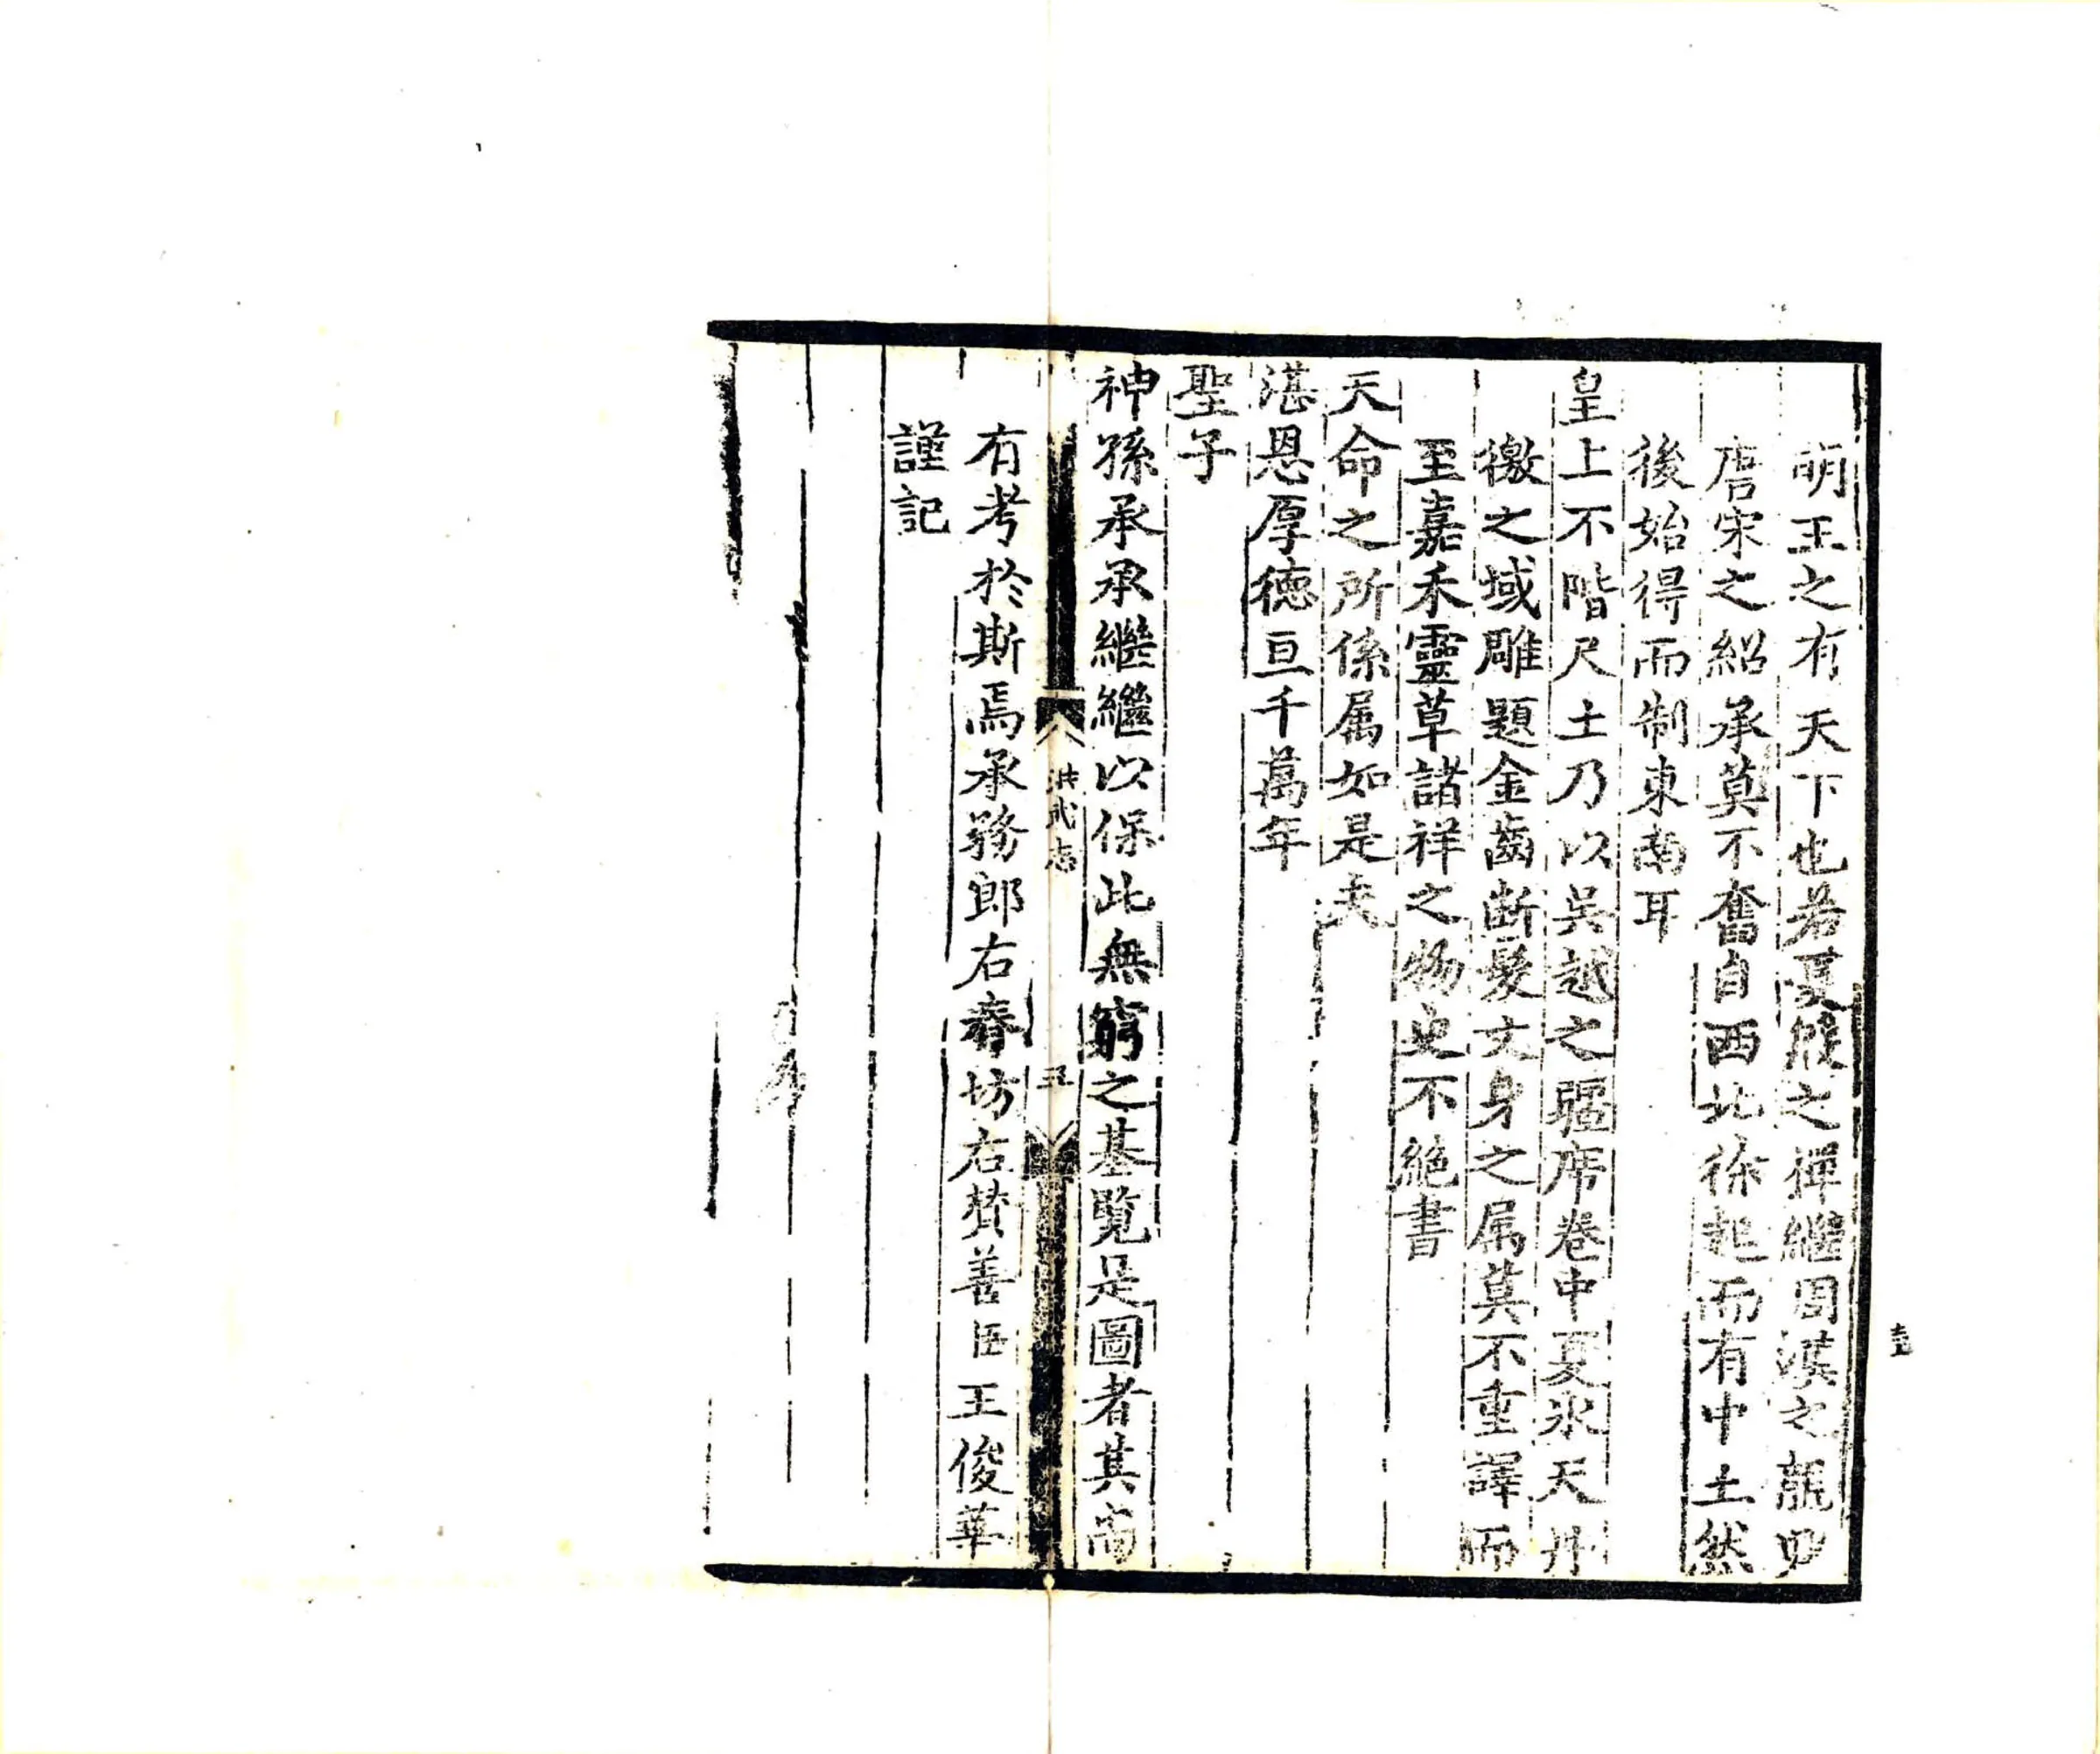 明王之有天下也若夏殷之禪繼周漢之龍興
唐宋之紹承莫不奮自西北徐起而有中土然
後始得而制東南耳
皇上不階尺土乃以吳越之疆席卷中夏氷天丹
徼之域雕題金齒斷髮文身之属莫不重譯而
至嘉禾靈草諸祥之物史不絶書
天命之所係属如是夫
湛恩厚德亘千萬年
聖子
神孫承承繼繼以保此無窮之基覽是圖者其尚
洪武志
五
有考於斯焉承務郎右春坊右賛善臣王俊華
謹記